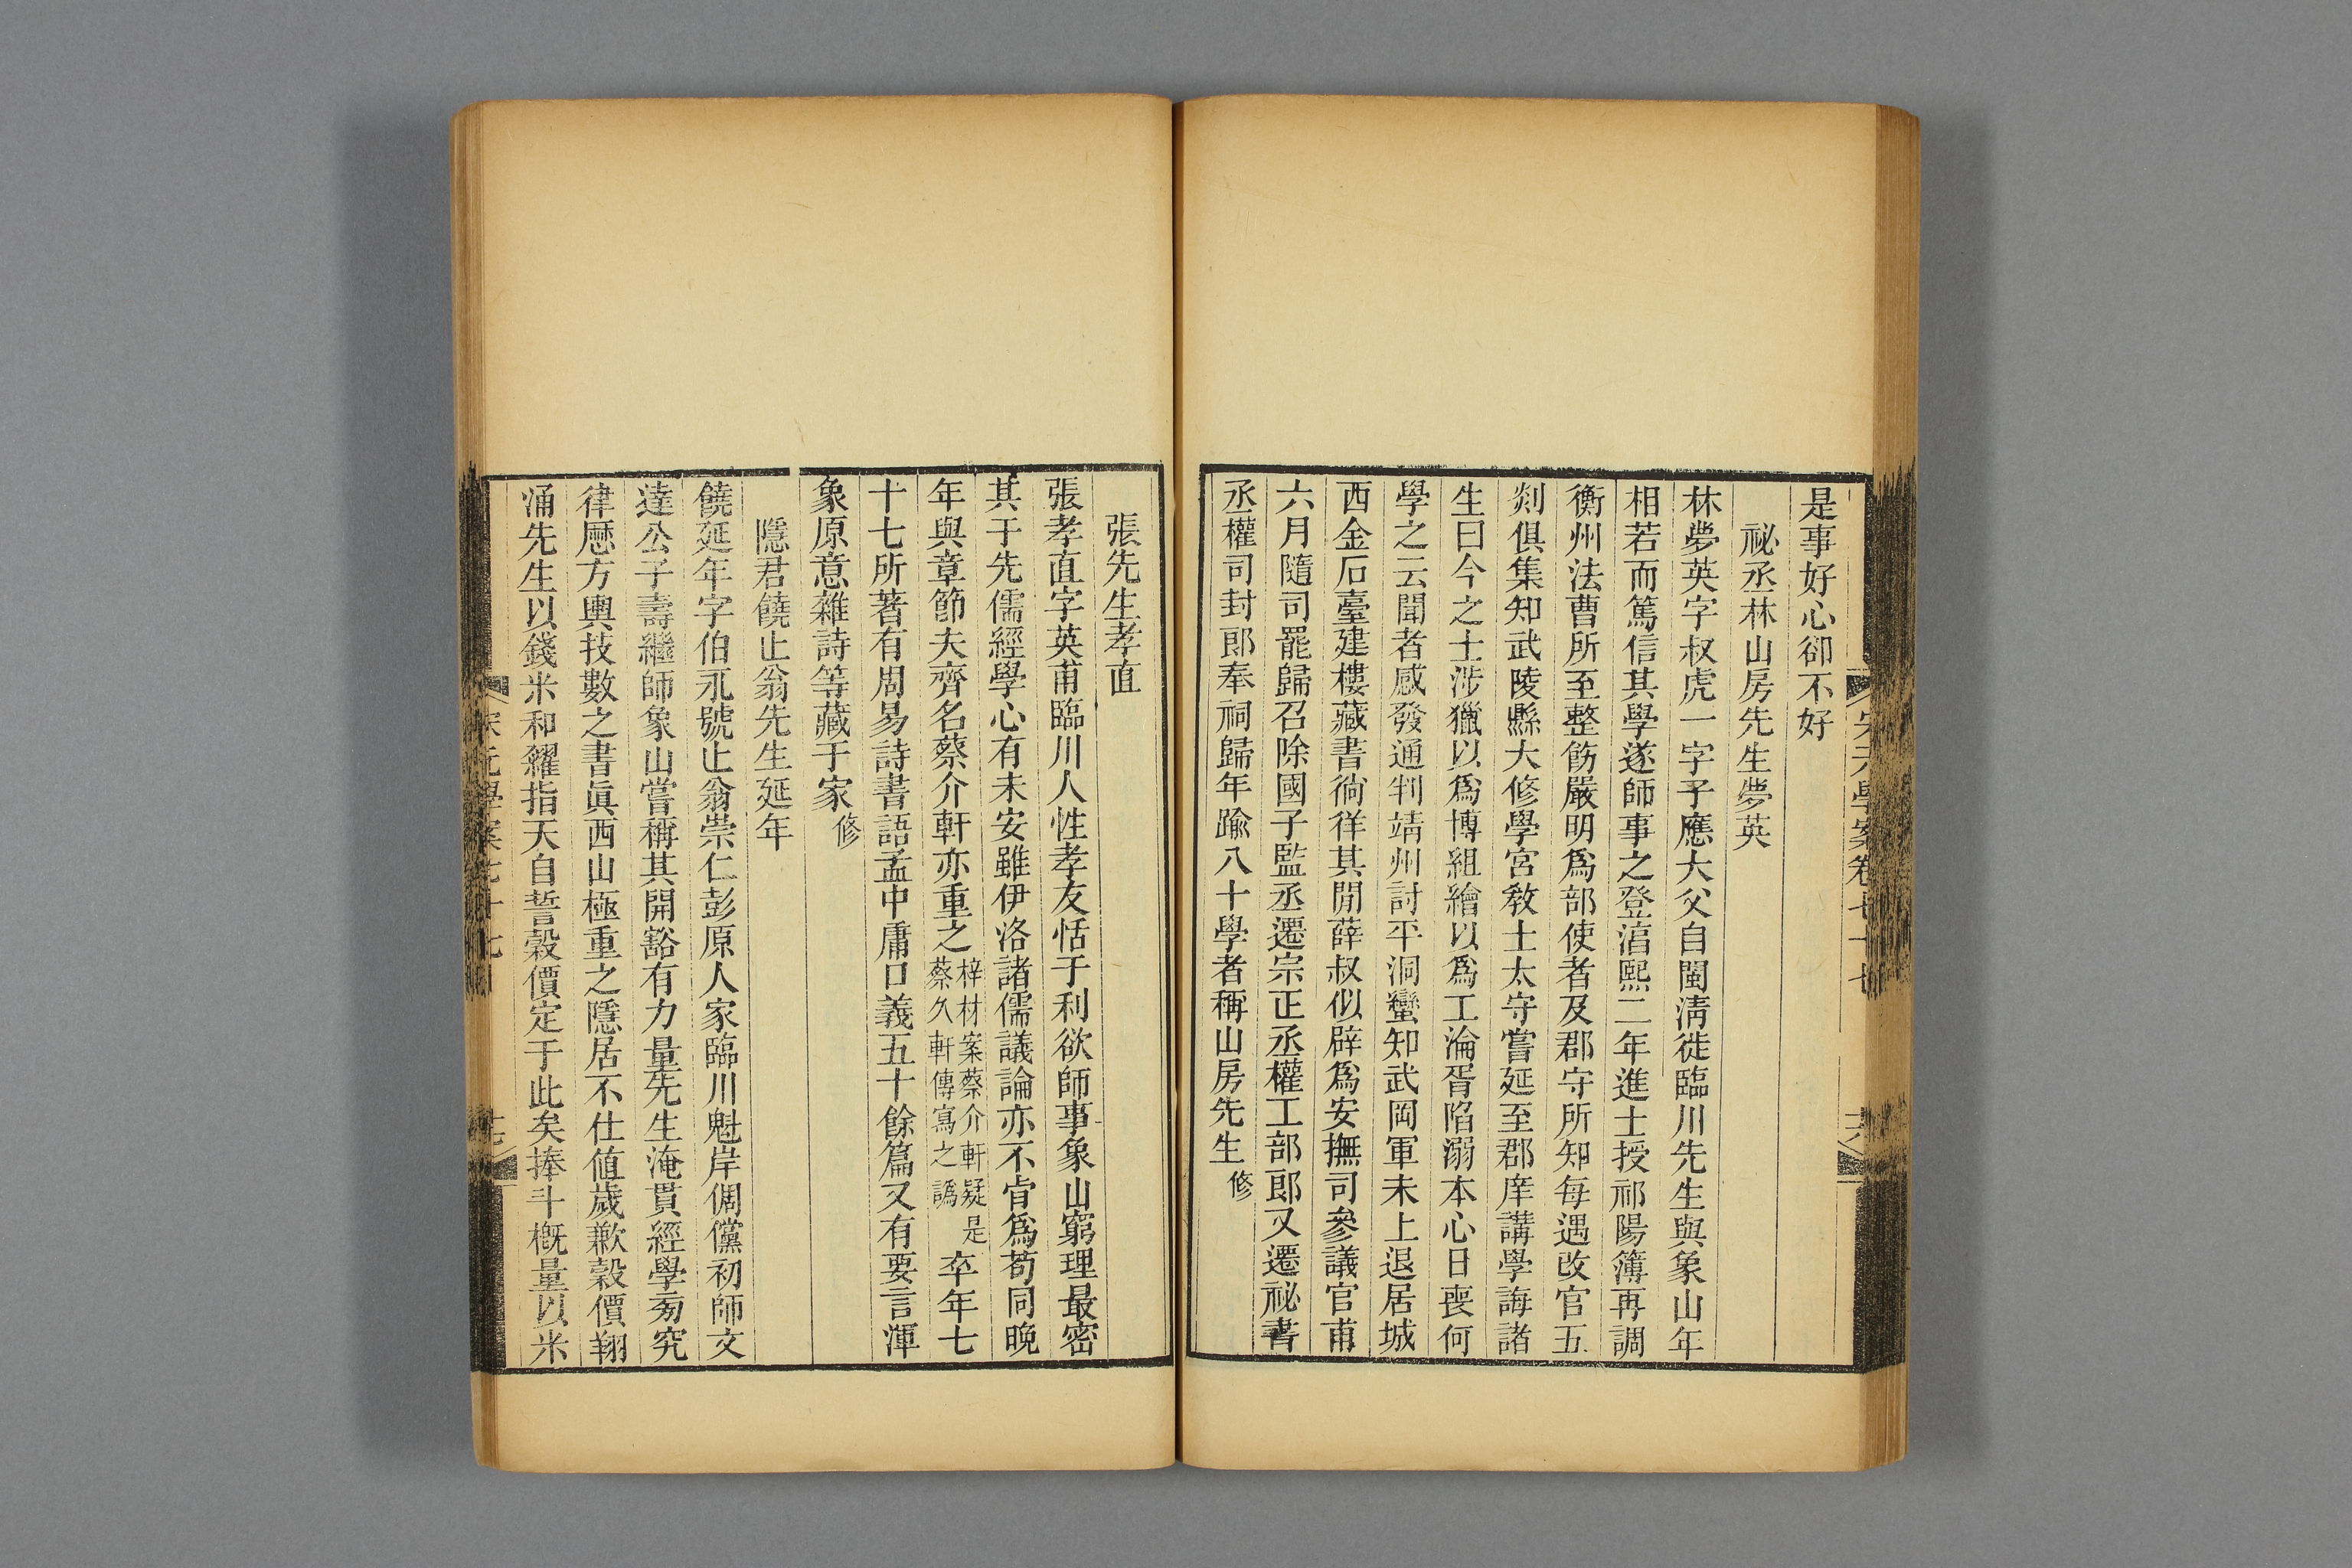 是事好心卻不好
祕丞林山房先生夢英
林夢英字叔虎一字子應大父自閩淸徙臨川先生與象山年
相若而篤信其學遂師事之登淳熙二年進士授祁陽簿再調
衡州法曹所至整飭嚴明爲部使者及郡守所知每遇改官五
剡俱集知武陵縣大修學宮敎士太守嘗延至郡庠講學誨諸
生曰今之士涉獵以爲博組繪以爲工淪胥陷溺本心日喪何
學之云聞者感發通判靖州討平洞蠻知武岡軍未上退居城
西金石臺建樓藏書徜徉其閒薛叔似辟爲安撫司參議官甫
六月隨司罷歸召除國子監丞遷宗正丞權工部郎又遷祕書
丞權司封郎奉祠歸年踰八十學者稱山房先生 修
張先生孝直
張孝直字英甫臨川人性孝友恬于利欲師事象山窮理最密
其于先儒經學心有未安雖伊洛諸儒議論亦不肯爲苟同晚
年與章節夫齊名蔡介軒亦重之 梓材案蔡介軒疑是蔡久軒傳寫之譌 卒年七
十七所著有周易詩書語孟中庸口義五十餘篇又有要言渾
象原意雜詩等藏于家 修
隱君饒止翁先生延年
饒延年字伯永號止翁崇仁彭原人家臨川魁岸倜儻初師文
達公子壽繼師象山嘗稱其開豁有力量先生淹貫經學旁究
律厯方輿技數之書眞西山極重之隱居不仕値歲歉穀價翔
涌先生以錢米和糴指天自誓穀價定于此矣捧斗槪量以米
宋元學案卷七十七